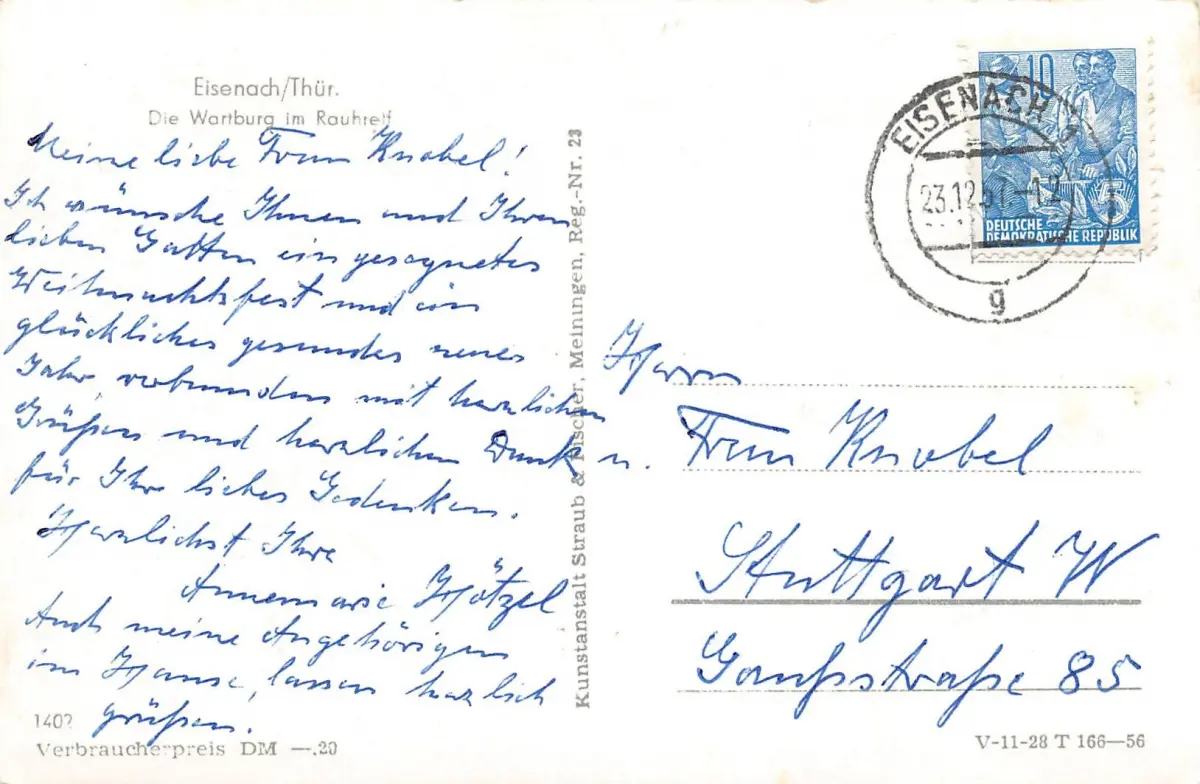 Eisenach/Thür.
Die Wartburg im Rauhreif
Meine liebe Frau Knobel!
Ich wünsche Ihnen und Ihrem
lieben Gatten ein gesegnetes
Weihnachtsfest und ein
glückliches gesundes neues
Jahr, verbunden mit herzlichen
Grüßen und herzlichen Dank
für Ihr liebes Gedenken.
Herzlichst Ihre
Annemarie Hötzel
Auch meine Angehörigen
im Hause, lassen herzlich
grüßen.
1402
Verbraucherpreis DM —.20
Kunstanstalt Straub & Fischer, Meiningen, Reg.-Nr. 23
10
DEUTSCHE
DEMOKRATISCHE REPUBLIK
5
EISENACH 1
23.12.57-12
g
Herrn
u. Frau Knobel
Stuttgart W
Gaußstraße 85
V-11-28 T 166—56